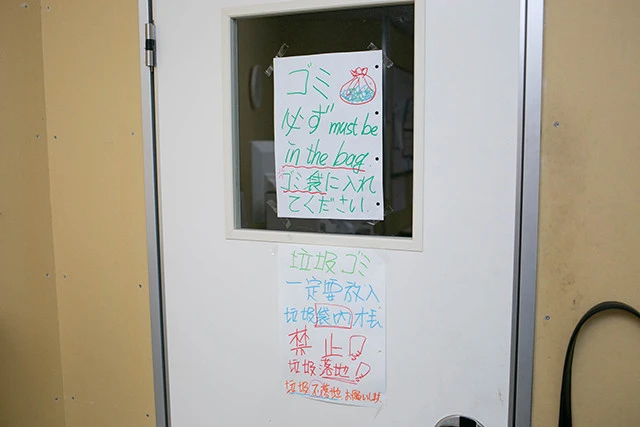 ゴミ
必ず must be
in the bag
ゴミ袋に入れ
てください.
垃圾ゴミ
一定要放入
垃圾袋内
禁止!
垃圾落地!
垃圾不落地 お願いします.